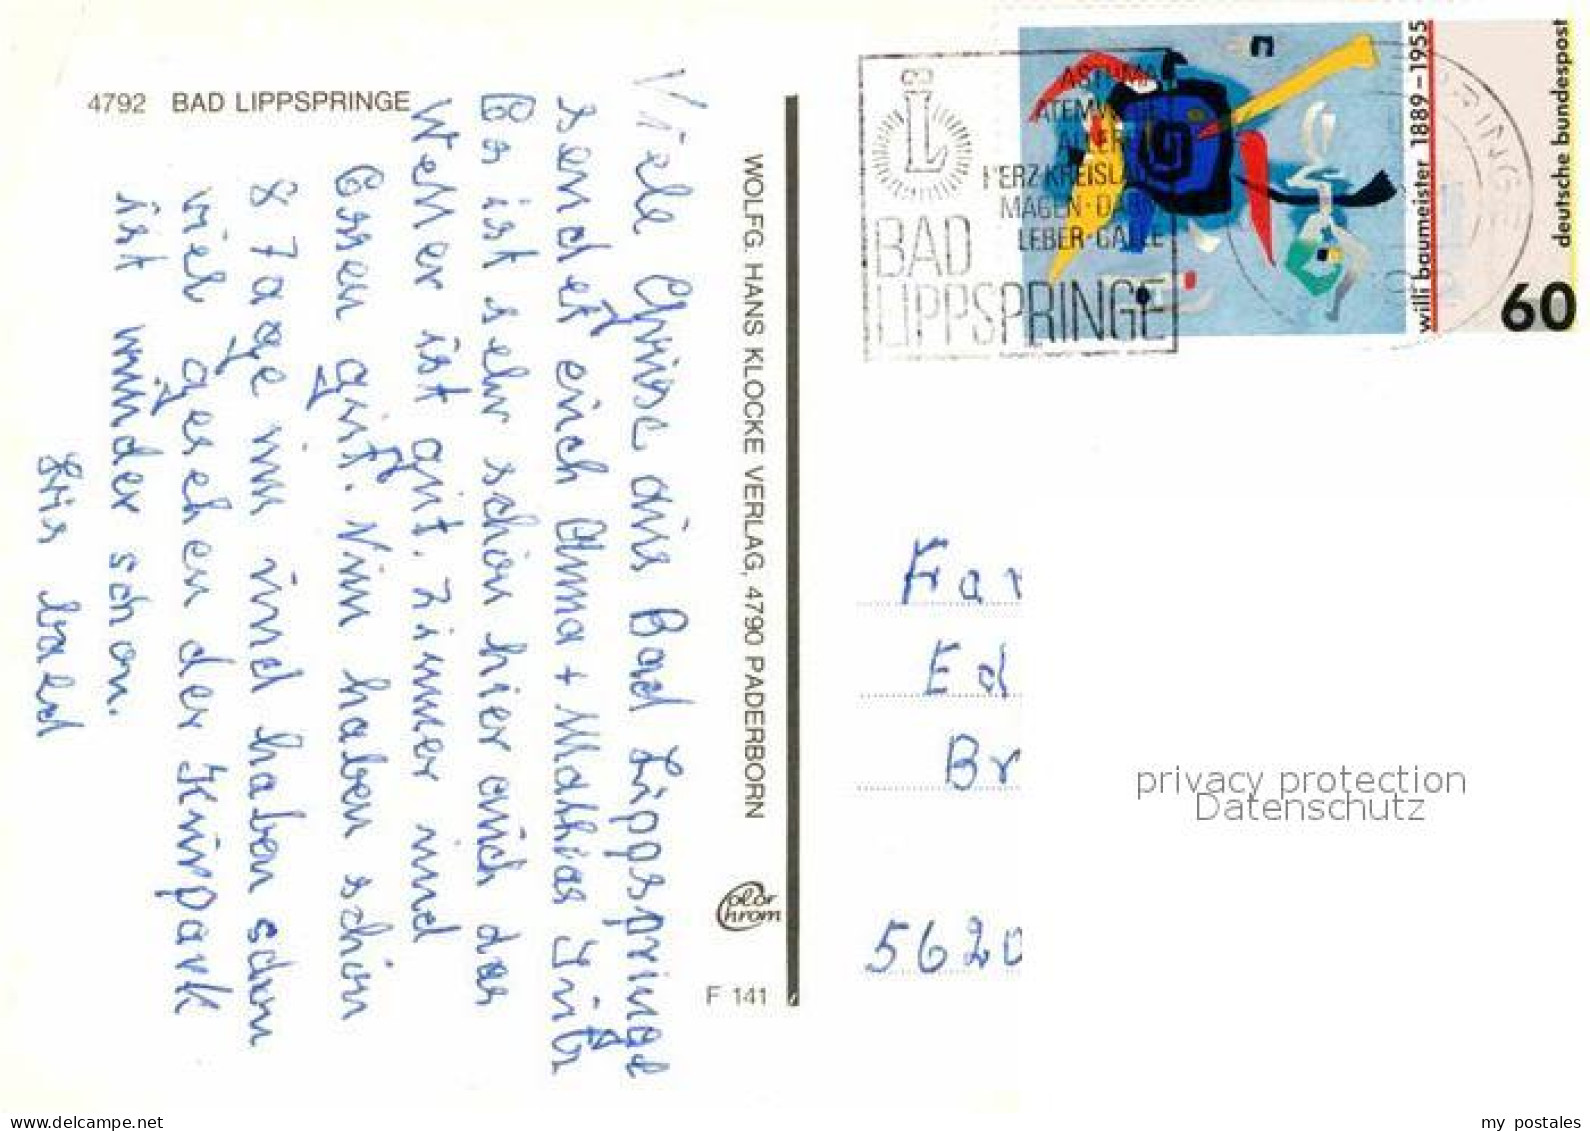 4792 BAD LIPPSPRINGE
Viele Grüse aus Bad Lippspringe
sendet euch Oma + Mathias Fritz
Es ist sehr schön hier auch das
Wetter ist gut. Zimmer und
Essen gut. Nun haben schon
8 Tage um und haben schon
viel gesehen der Kurpark
ist wunder schön.
bis bald
WOLFG. HANS KLOCKE VERLAG, 4790 PADERBORN
Color Chrom
F 141
ASTHMA
ATEMWEGE
HERZ-KREISLAUF
MAGEN-DARM
LEBER-GALLE
BAD
LIPPSPRINGE
willi baumeister 1889-1955
deutsche bundespost
60
Ed
Br
5620
privacy protection
Datenschutz
my_postales